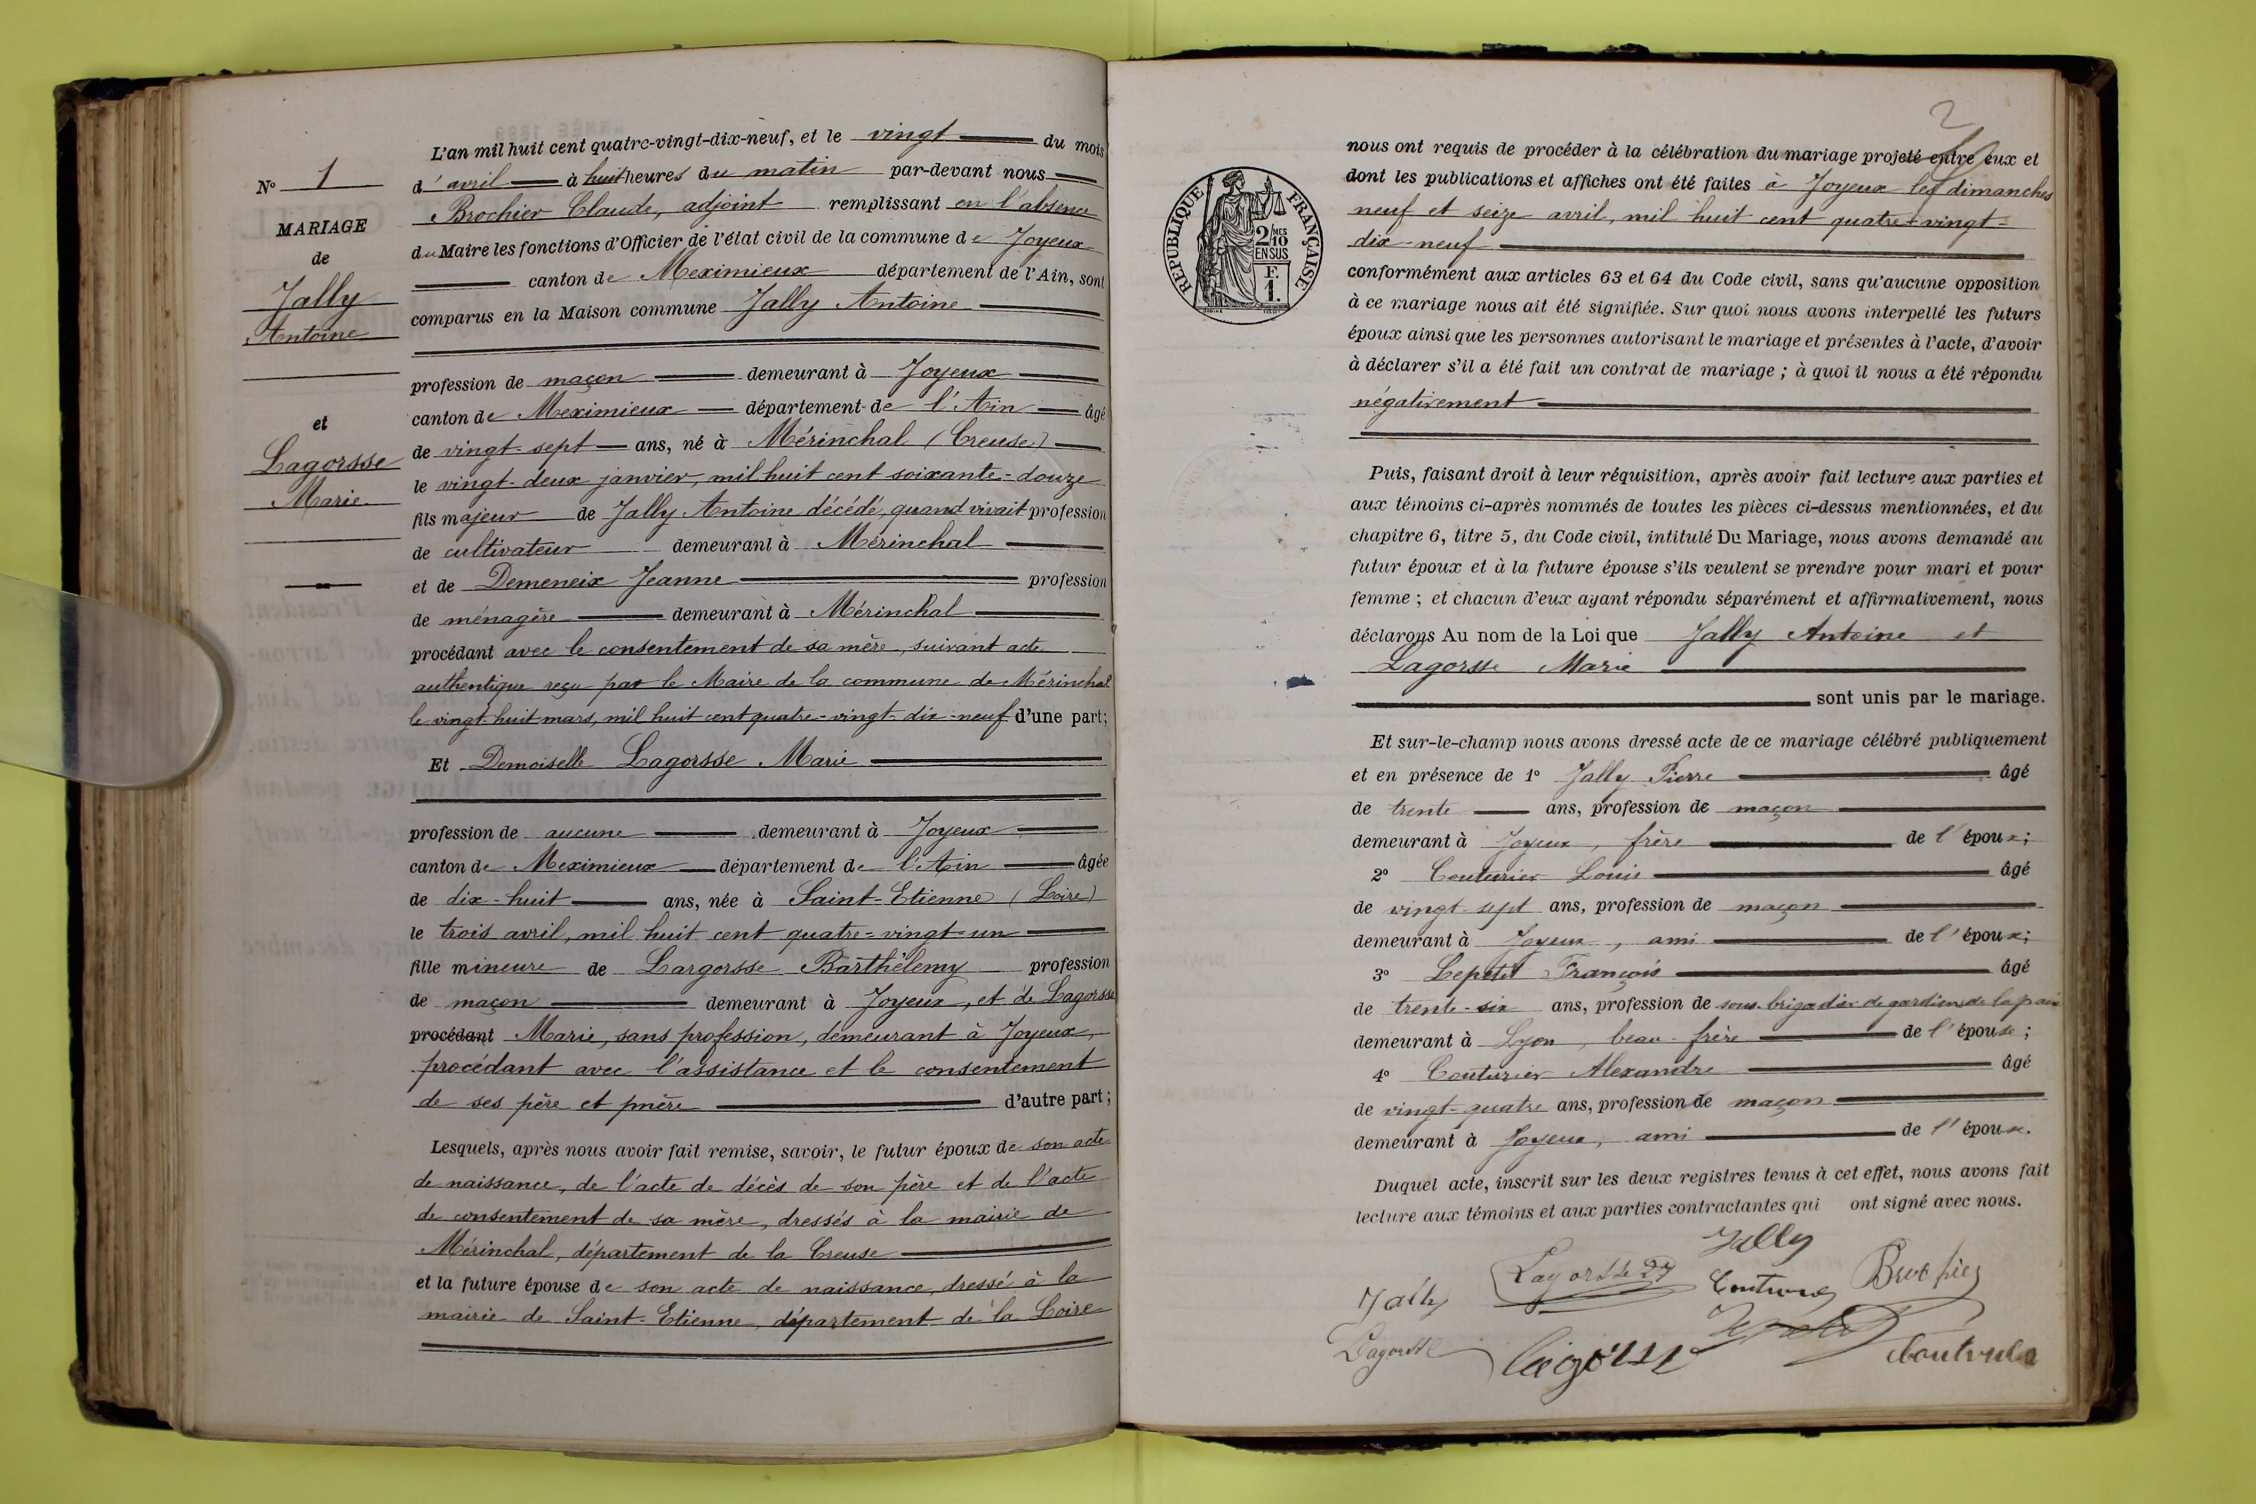 N° 1
MARIAGE
de
Jally
Antoine
et
Lagorsse
Marie
L'an mil huit cent quatre-vingt-dix-neuf, et le vingt du mois
d'avril à huit heures du matin par-devant nous
Brochier Claude, adjoint remplissant en l'absence
du Maire les fonctions d'Officier de l'état civil de la commune de Joyeux
canton de Meximieux département de l'Ain, sont
comparus en la Maison commune Jally Antoine
profession de maçon demeurant à Joyeux
canton de Meximieux département de l'Ain âgé
de vingt-sept ans, né à Mérinchal (Creuse)
le vingt-deux janvier, mil huit cent soixante-douze
fils majeur de Jally Antoine décédé, quand vivait profession
de cultivateur demeurant à Mérinchal
et de Demeneix Jeanne profession
de ménagère demeurant à Mérinchal
procédant avec le consentement de sa mère, suivant acte
authentique reçu par le Maire de la commune de Mérinchal
le vingt-huit mars, mil huit cent quatre-vingt-dix-neuf d'une part;
Et Demoiselle Lagorsse Marie
profession de aucune demeurant à Joyeux
canton de Meximieux département de l'Ain âgée
de dix-huit ans, née à Saint-Etienne (Loire)
le trois avril, mil huit cent quatre-vingt-un
fille mineure de Largorsse Barthélemy profession
de maçon demeurant à Joyeux, et de Lagorsse
procédant Marie, sans profession, demeurant à Joyeux,
procédant avec l'assistance et le consentement
de ses père et mère d'autre part;
Lesquels, après nous avoir fait remise, savoir, le futur époux de son acte
de naissance, de l'acte de décès de son père et de l'acte
de consentement de sa mère, dressés à la mairie de
Mérinchal, département de la Creuse
et la future épouse de son acte de naissance, dressé à la
mairie de Saint-Etienne, département de la Loire
2
RÉPUBLIQUE FRANÇAISE
2/10 MES
EN SUS
F.
1.
nous ont requis de procéder à la célébration du mariage projeté entre eux et
dont les publications et affiches ont été faites à Joyeux les dimanches
neuf et seize avril, mil huit cent quatre-vingt-
dix-neuf
conformément aux articles 63 et 64 du Code civil, sans qu'aucune opposition
à ce mariage nous ait été signifiée. Sur quoi nous avons interpellé les futurs
époux ainsi que les personnes autorisant le mariage et présentes à l'acte, d'avoir
à déclarer s'il a été fait un contrat de mariage ; à quoi il nous a été répondu
négativement
Puis, faisant droit à leur réquisition, après avoir fait lecture aux parties et
aux témoins ci-après nommés de toutes les pièces ci-dessus mentionnées, et du
chapitre 6, titre 5, du Code civil, intitulé Du Mariage, nous avons demandé au
futur époux et à la future épouse s'ils veulent se prendre pour mari et pour
femme ; et chacun d'eux ayant répondu séparément et affirmativement, nous
déclarons Au nom de la Loi que Jally Antoine et
Lagorsse Marie
sont unis par le mariage.
Et sur-le-champ nous avons dressé acte de ce mariage célébré publiquement
et en présence de 1° Jally Pierre âgé
de trente ans, profession de maçon
demeurant à Joyeux, frère de l'époux;
2° Couturier Louis âgé
de vingt-sept ans, profession de maçon
demeurant à Joyeux, ami de l'époux;
3° Lepetit François âgé
de trente-six ans, profession de sous-brigadier de gardiens de la paix
demeurant à Lyon, beau-frère de l'époux;
4° Couturier Alexandre âgé
de vingt-quatre ans, profession de maçon
demeurant à Joyeux, ami de l'époux.
Duquel acte, inscrit sur les deux registres tenus à cet effet, nous avons fait
lecture aux témoins et aux parties contractantes qui ont signé avec nous.
Jally
Lagorsse
Brochier
Jally
Lagorsse